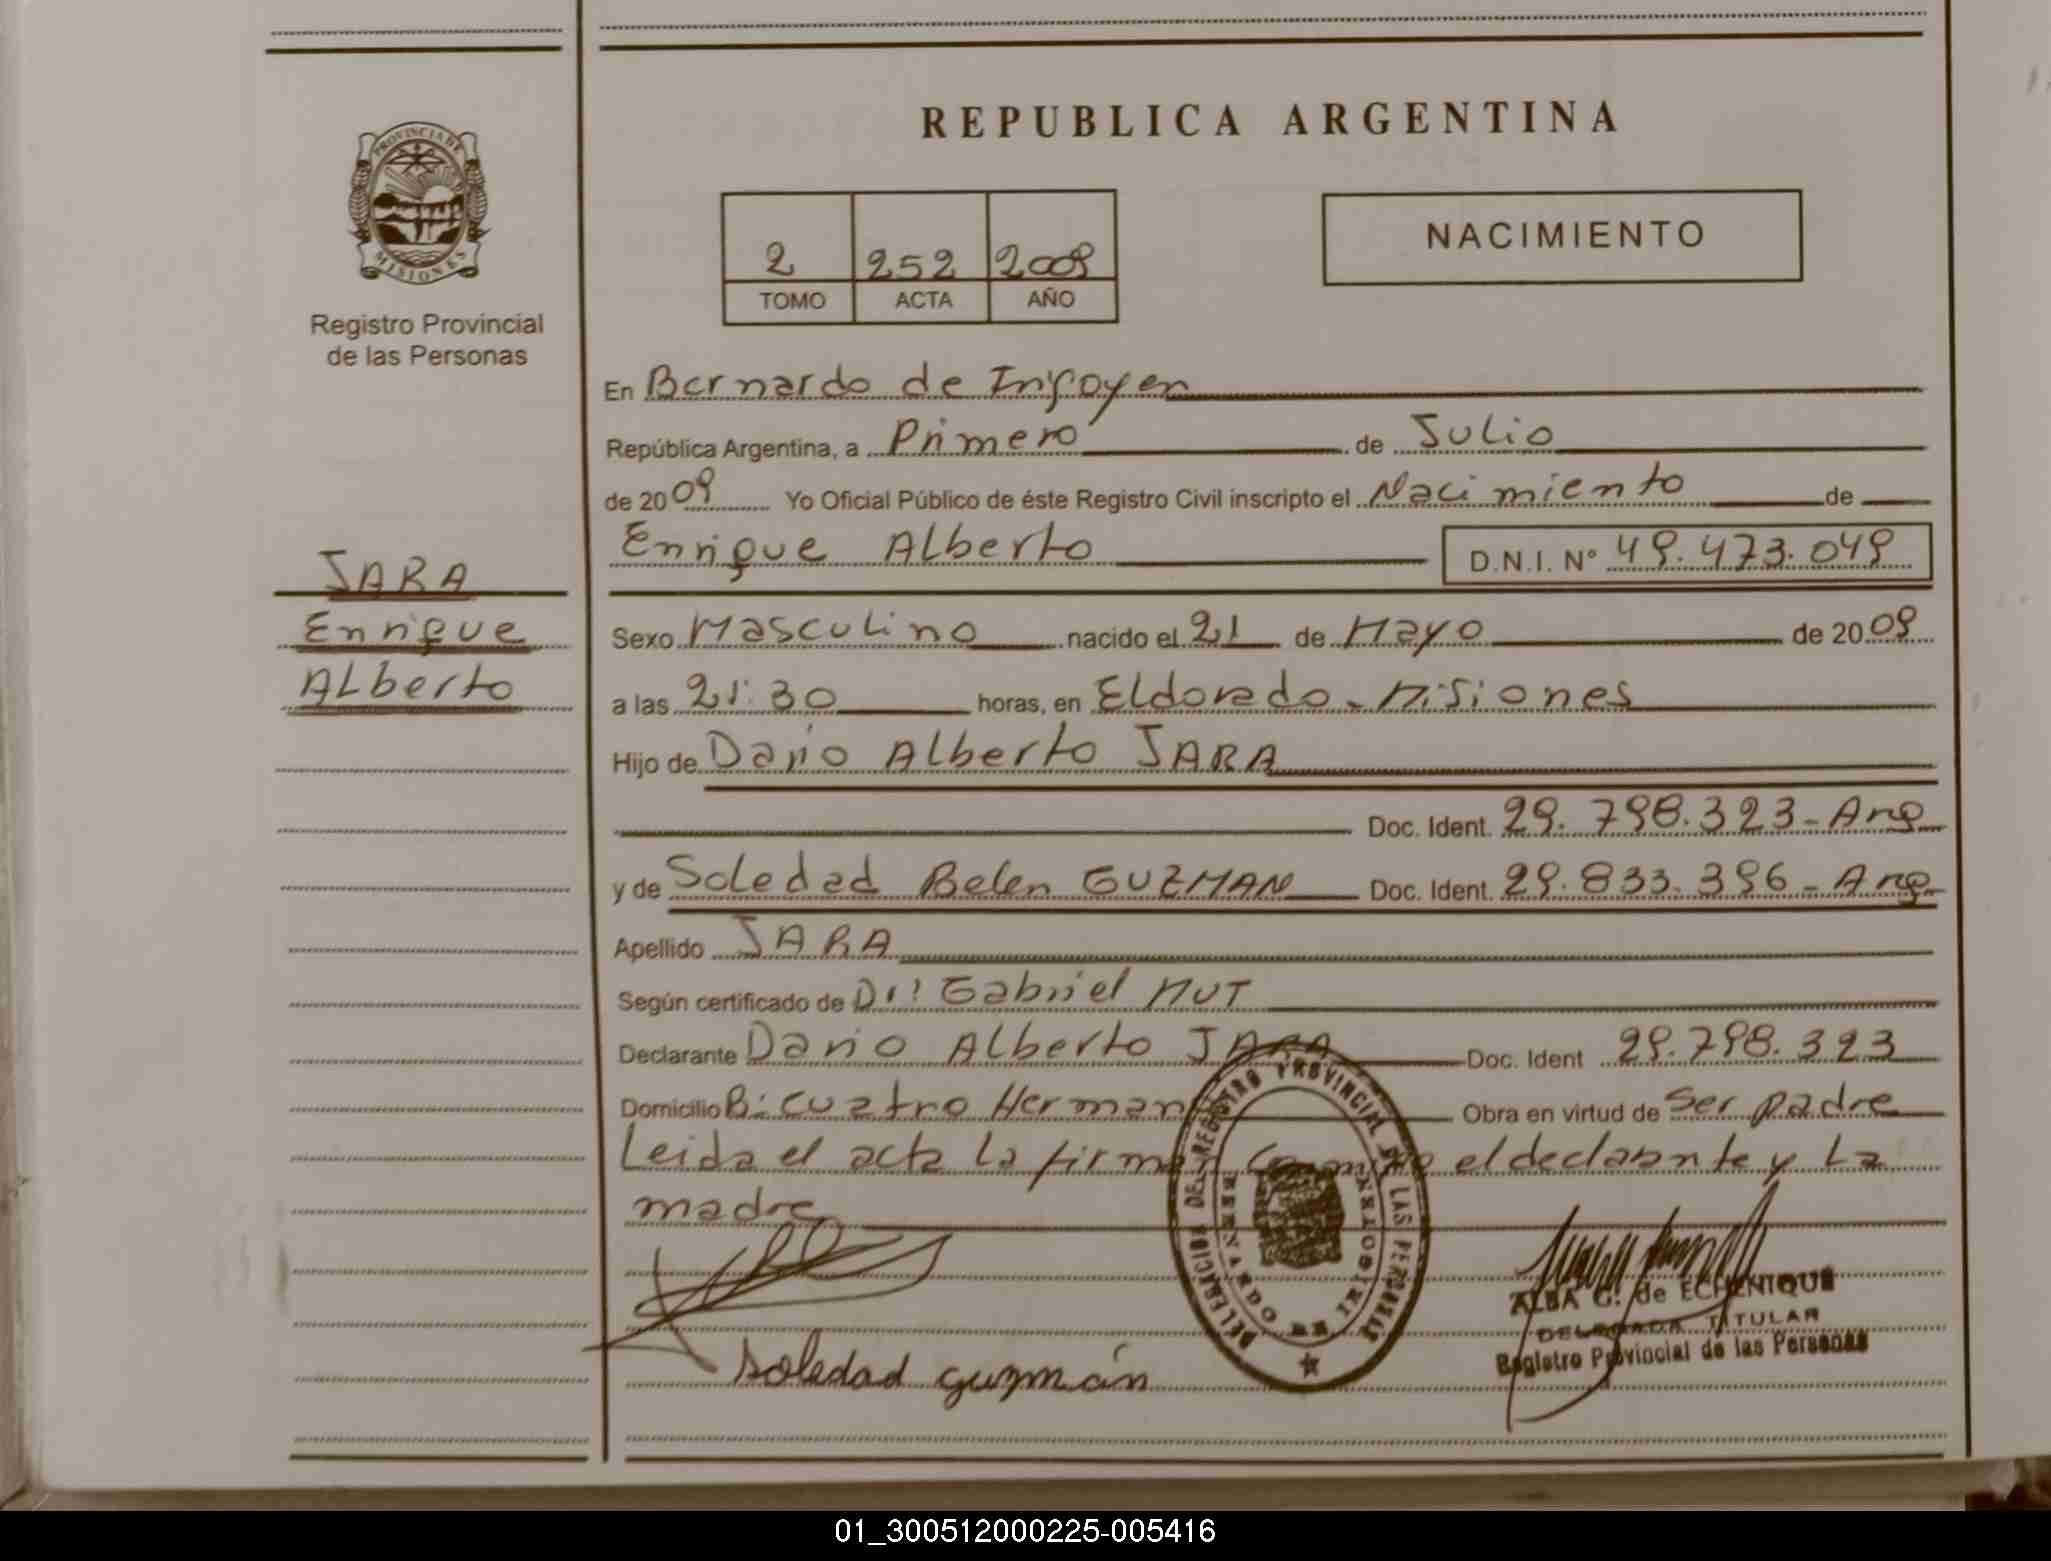 REPUBLICA ARGENTINA
PROVINCIA DE
MISIONES
Registro Provincial
de las Personas
2 252 2009
TOMO ACTA AÑO
NACIMIENTO
En Bernardo de Irigoyen
República Argentina, a Primero de Julio
de 2009 Yo Oficial Público de éste Registro Civil inscripto el Nacimiento de
Enrique Alberto D.N.I. Nº 49.473.049
JARA
Enrique
Alberto
Sexo Masculino nacido el 21 de Mayo de 2009
a las 21:30 horas, en Eldorado - Misiones
Hijo de Dario Alberto JARA
Doc. Ident. 29.798.323 - Arg
y de Soledad Belen GUZMAN Doc. Ident. 29.833.396 - Arg
Apellido JARA
Según certificado de Dr: Gabriel MUT
Declarante Dario Alberto JARA Doc. Ident 29.798.323
Domicilio B: cuatro Herman Obra en virtud de Ser padre
Leida el acta la firma el declarante y La
madre
DELEGACION DEL REGISTRO PROVINCIAL DE LAS PERSONAS
BERNARDO DE IRIGOYEN
ALBA G. de ECHENIQUE
DELEGADA TITULAR
Registro Provincial de las Personas
soledad guzmán
01_300512000225-005416